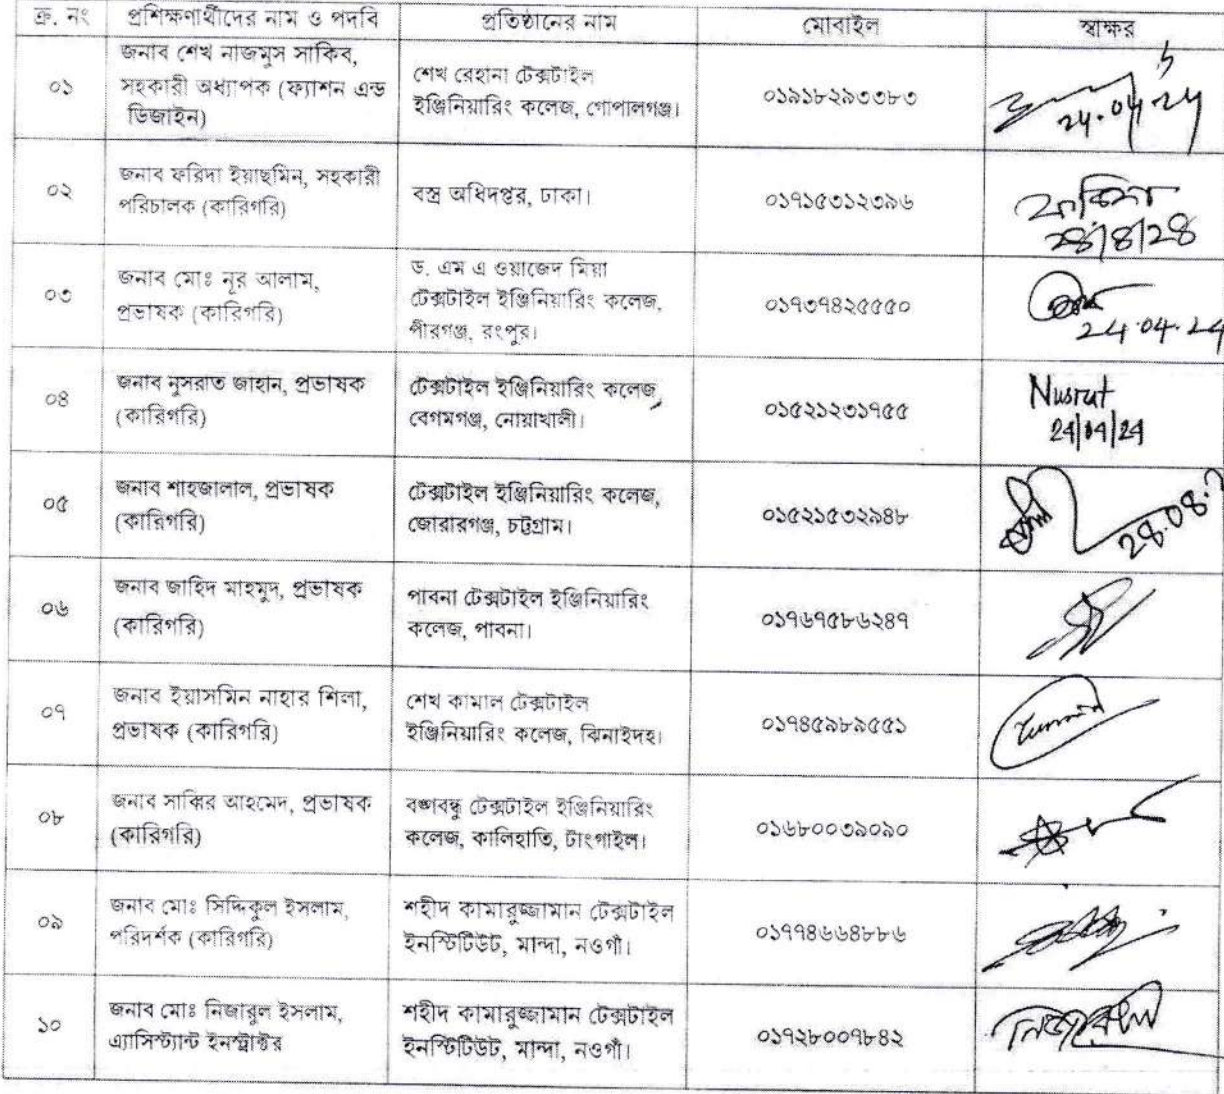 ক্র. নং প্রশিক্ষণার্থীদের নাম ও পদবি প্রতিষ্ঠানের নাম মোবাইল স্বাক্ষর
০১
জনাব শেখ নাজমুস সাকিব,
সহকারী অধ্যাপক (ফ্যাশন এন্ড
ডিজাইন)
শেখ রেহানা টেক্সটাইল
ইঞ্জিনিয়ারিং কলেজ, গোপালগঞ্জ।
০১৯১৮২৯৩৩৮৩
24.04.24
০২
জনাব ফরিদা ইয়াছমিন, সহকারী
পরিচালক (কারিগরি)
বস্ত্র অধিদপ্তর, ঢাকা।
০১৭১৫৩১২৩৯৬
ফরিদা
২৪/৪/২৪
০৩
জনাব মোঃ নূর আলাম,
প্রভাষক (কারিগরি)
ড. এম এ ওয়াজেদ মিয়া
টেক্সটাইল ইঞ্জিনিয়ারিং কলেজ,
পীরগঞ্জ, রংপুর।
০১৭৩৭৪২৫৫৫০
24.04.24
০৪
জনাব নুসরাত জাহান, প্রভাষক
(কারিগরি)
টেক্সটাইল ইঞ্জিনিয়ারিং কলেজ,
বেগমগঞ্জ, নোয়াখালী।
০১৫২১২৩১৭৫৫
Nusrat
24/04/24
০৫
জনাব শাহজালাল, প্রভাষক
(কারিগরি)
টেক্সটাইল ইঞ্জিনিয়ারিং কলেজ,
জোরারগঞ্জ, চট্টগ্রাম।
০১৫২১৫৩২৯৪৮
০৬
জনাব জাহিদ মাহমুদ, প্রভাষক
(কারিগরি)
পাবনা টেক্সটাইল ইঞ্জিনিয়ারিং
কলেজ, পাবনা।
০১৭৬৭৫৮৬২৪৭
০৭
জনাব ইয়াসমিন নাহার শিলা,
প্রভাষক (কারিগরি)
শেখ কামাল টেক্সটাইল
ইঞ্জিনিয়ারিং কলেজ, ঝিনাইদহ।
০১৭৪৫৯৮৯৫৫১
০৮
জনাব সাব্বির আহমেদ, প্রভাষক
(কারিগরি)
বঙ্গবন্ধু টেক্সটাইল ইঞ্জিনিয়ারিং
কলেজ, কালিহাতি, টাংগাইল।
০১৬৮০০৩৯০৯০
০৯
জনাব মোঃ সিদ্দিকুল ইসলাম,
পরিদর্শক (কারিগরি)
শহীদ কামারুজ্জামান টেক্সটাইল
ইনস্টিটিউট, মান্দা, নওগাঁ।
০১৭৭৪৬৬৪৮৮৬
১০
জনাব মোঃ নিজারুল ইসলাম,
এ্যাসিস্ট্যান্ট ইনস্ট্রাক্টর
শহীদ কামারুজ্জামান টেক্সটাইল
ইনস্টিটিউট, মান্দা, নওগাঁ।
০১৭২৮০০৭৮৪২